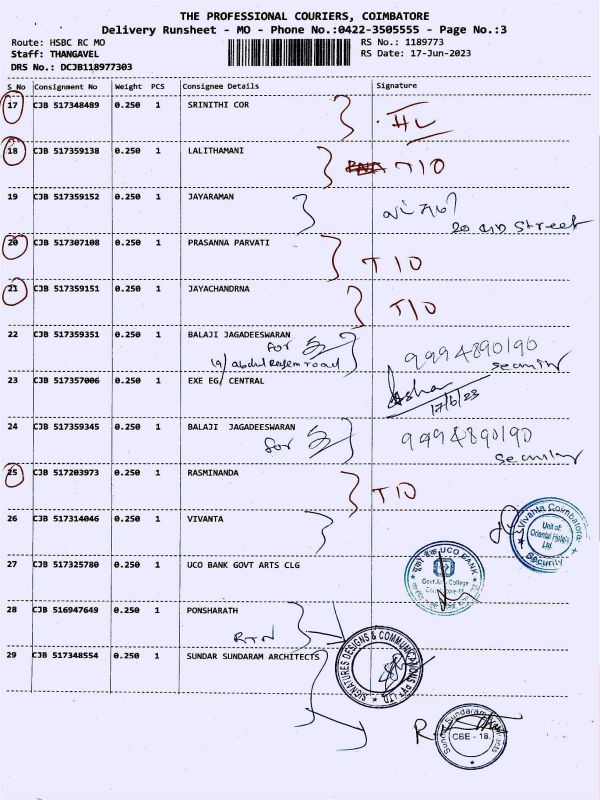 THE PROFESSIONAL COURIERS, COIMBATORE
Delivery Runsheet - MO - Phone No.:0422-3505555 - Page No.:3
Route: HSBC RC MO
RS No.: 1189773
Staff: THANGAVEL
RS Date: 17-Jun-2023
DRS No.: DCJB118977303
S No Consignment No Weight PCS Consignee Details Signature
17 CJB 517348489 0.250 1 SRINITHI COR
18 CJB 517359138 0.250 1 LALITHAMANI T10
19 CJB 517359152 0.250 1 JAYARAMAN
Street
20 CJB 517307108 0.250 1 PRASANNA PARVATI T10
21 CJB 517359151 0.250 1 JAYACHANDRNA T10
22 CJB 517359351 0.250 1 BALAJI JAGADEESWARAN 9994890190
for
security
19/ abdul road
23 CJB 517357006 0.250 1 EXE EG/ CENTRAL
17/6/23
24 CJB 517359345 0.250 1 BALAJI JAGADEESWARAN 9994890190
for
security
25 CJB 517203973 0.250 1 RASMINANDA T10
26 CJB 517314046 0.250 1 VIVANTA
Vivanta Coimbatore
Unit of
Oriental Hotels
Ltd.
Security
27 CJB 517325780 0.250 1 UCO BANK GOVT ARTS CLG
UCO BANK
Govt Arts College
28 CJB 516947649 0.250 1 PONSHARATH
RTN
SIGNATURES DESIGNS & COMMUNICATIONS PVT LTD
29 CJB 517348554 0.250 1 SUNDAR SUNDARAM ARCHITECTS
CBE - 18.